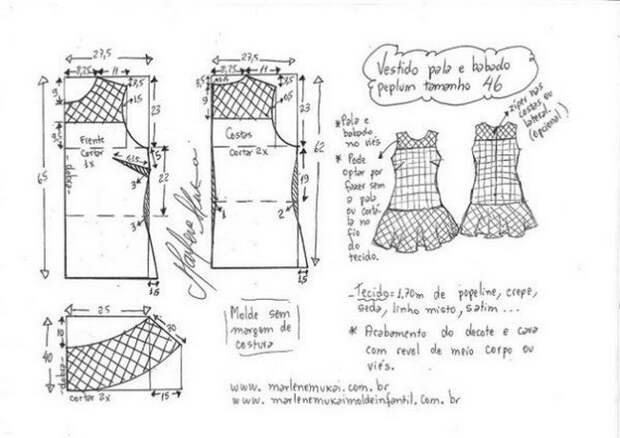 27,5
8,25
11
3,5
9
1,5
23
9,5
Frente
Cortar
1x
dobra
65
5
3
22
3
1,5
Marlene Mukai
27,5
8,25
11
3,5
9
0,5
23
Costas
cortar 2x
62
19
1
2
1,5
Vestido pala e babado
peplum tamanho 46
zíper nas
costas ou
lateral.
(opcional)
* Pala e
babado
no viés
* Pode
optar por
fazer sem
a pala
ou cortá-
la no
fio
do
tecido.
25
20
10
40
dobra
cortar 2x
15
Molde sem
margem de
costura
- Tecido = 1,70m de popeline, crepe,
seda, linho misto, satim ...
* Acabamento do decote e cava
com revel de meio corpo ou
viés.
www. marlenemukai.com.br
www. marlenemukaimoldeinfantil.com.br